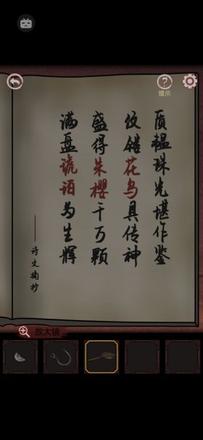 质韫珠光堪作鉴
纹镂花鸟具传神
盛得朱樱千万颗
满盘琥珀为生辉
——诗文摘抄
提示
放大镜